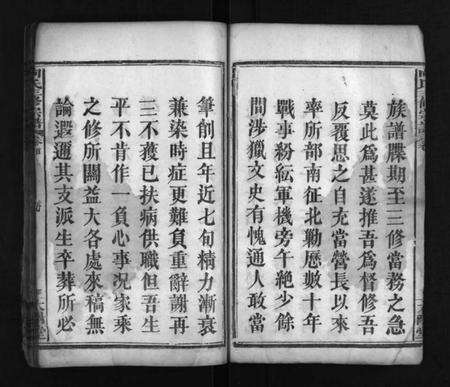 族譜牒期至三修當務之急
莫此爲甚遂推吾爲督修吾
反覆思之自充當營長以來
率所部南征北勦歷數十年
戰事粉紜軍機旁午絶少餘
間涉獵文史有愧通人敢當
筆創且年近七旬精力漸衰
兼染時症更難負重辭謝再
三不獲已扶病供職但吾生
平不肯作一負心事况家乘
之修所關益大各處來稿無
論遐邇其支派生卒葬所必